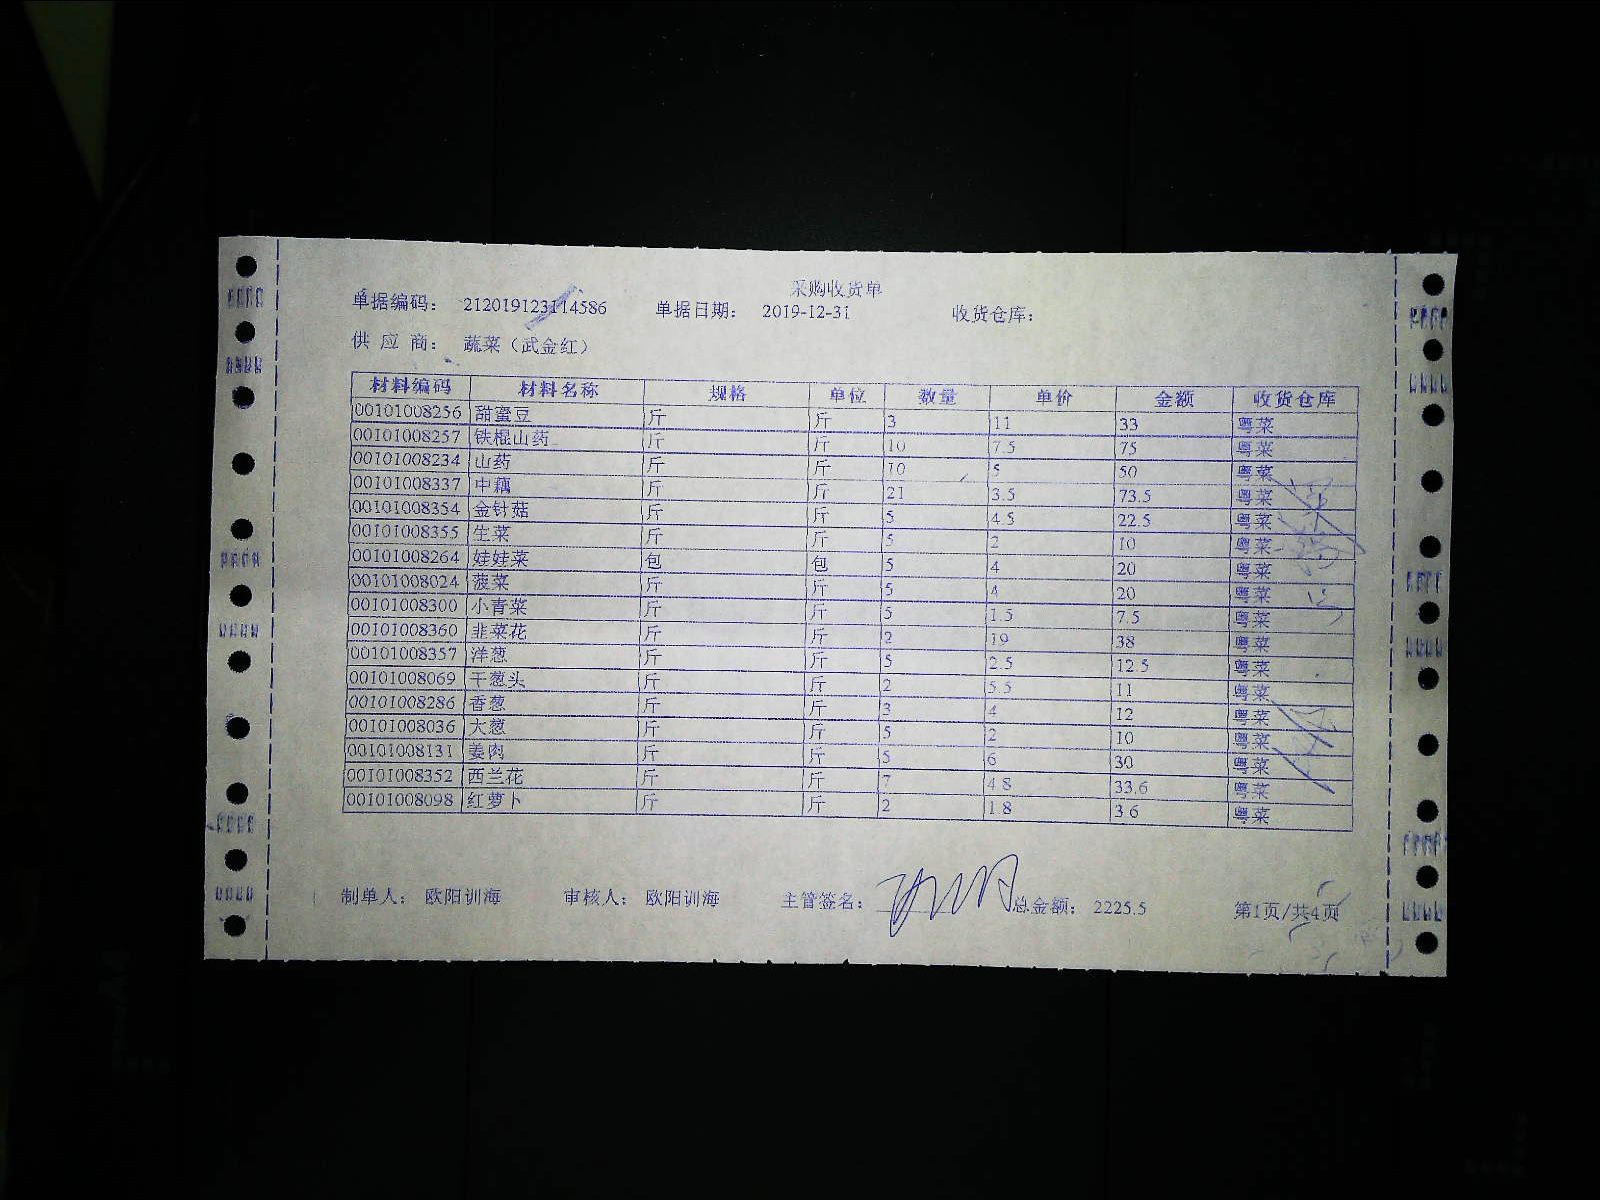 采购收货单
单据编码： 212019123114586 单据日期： 2019-12-31 收货仓库：
供 应 商： 蔬菜（武金红）
材料编码 材料名称 规格 单位 数量 单价 金额 收货仓库
00101008256 甜蜜豆 斤 斤 3 11 33 粤菜
00101008257 铁棍山药 斤 斤 10 7.5 75 粤菜
00101008234 山药 斤 斤 10 5 50 粤菜
00101008337 中藕 斤 斤 21 3.5 73.5 粤菜
00101008354 金针菇 斤 斤 5 4.5 22.5 粤菜
00101008355 生菜 斤 斤 5 2 10 粤菜
00101008264 娃娃菜 包 包 5 4 20 粤菜
00101008024 菠菜 斤 斤 5 4 20 粤菜
00101008300 小青菜 斤 斤 5 1.5 7.5 粤菜
00101008360 韭菜花 斤 斤 2 19 38 粤菜
00101008357 洋葱 斤 斤 5 2.5 12.5 粤菜
00101008069 干葱头 斤 斤 2 5.5 11 粤菜
00101008286 香葱 斤 斤 3 4 12 粤菜
00101008036 大葱 斤 斤 5 2 10 粤菜
00101008131 姜肉 斤 斤 5 6 30 粤菜
00101008352 西兰花 斤 斤 7 4.8 33.6 粤菜
00101008098 红萝卜 斤 斤 2 1.8 3.6 粤菜
制单人： 欧阳训海 审核人： 欧阳训海 主管签名： 总金额： 2225.5 第1页/共4页